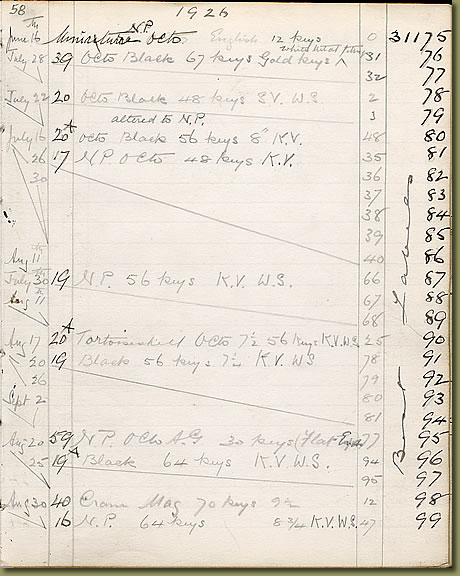 58 1926
June 16th Miniature N.P. Octo English 12 keys 0 31175
July 28 39 Octo Black 67 keys Gold keys ^ White Metal 31 76
32 77
July 22 20 Octo Black 48 keys S.V. W.S. 2 78
altered to N.P. 3 79
July 16 20A Octo Black 56 keys 8" K.V. 48 80
26 17 N.P. Octo 48 keys K.V. 35 81
30 36 82
37 83
38 84
39 85
Aug 11th 40 86
July 30 19 N.P. 56 keys K.V. W.S. 66 87
Aug 11 67 88
68 89
Aug 17 20A Tortoiseshell Octo 7½ 56 keys K.V. W.S. 25 90
20 19 Black 56 keys 7¼ K.V. W.S. 78 91
26 79 92
Sept 2 80 93
81 94
Aug 20 59 N.P. Octo AG 30 keys (Flat 77 95
25 19A Black 64 keys K.V. W.S. 94 96
95 97
Aug 30 40 Crane Mag 70 keys 9½ 12 98
16 N.P. 64 keys 8¾ K.V. W.S. 47 99